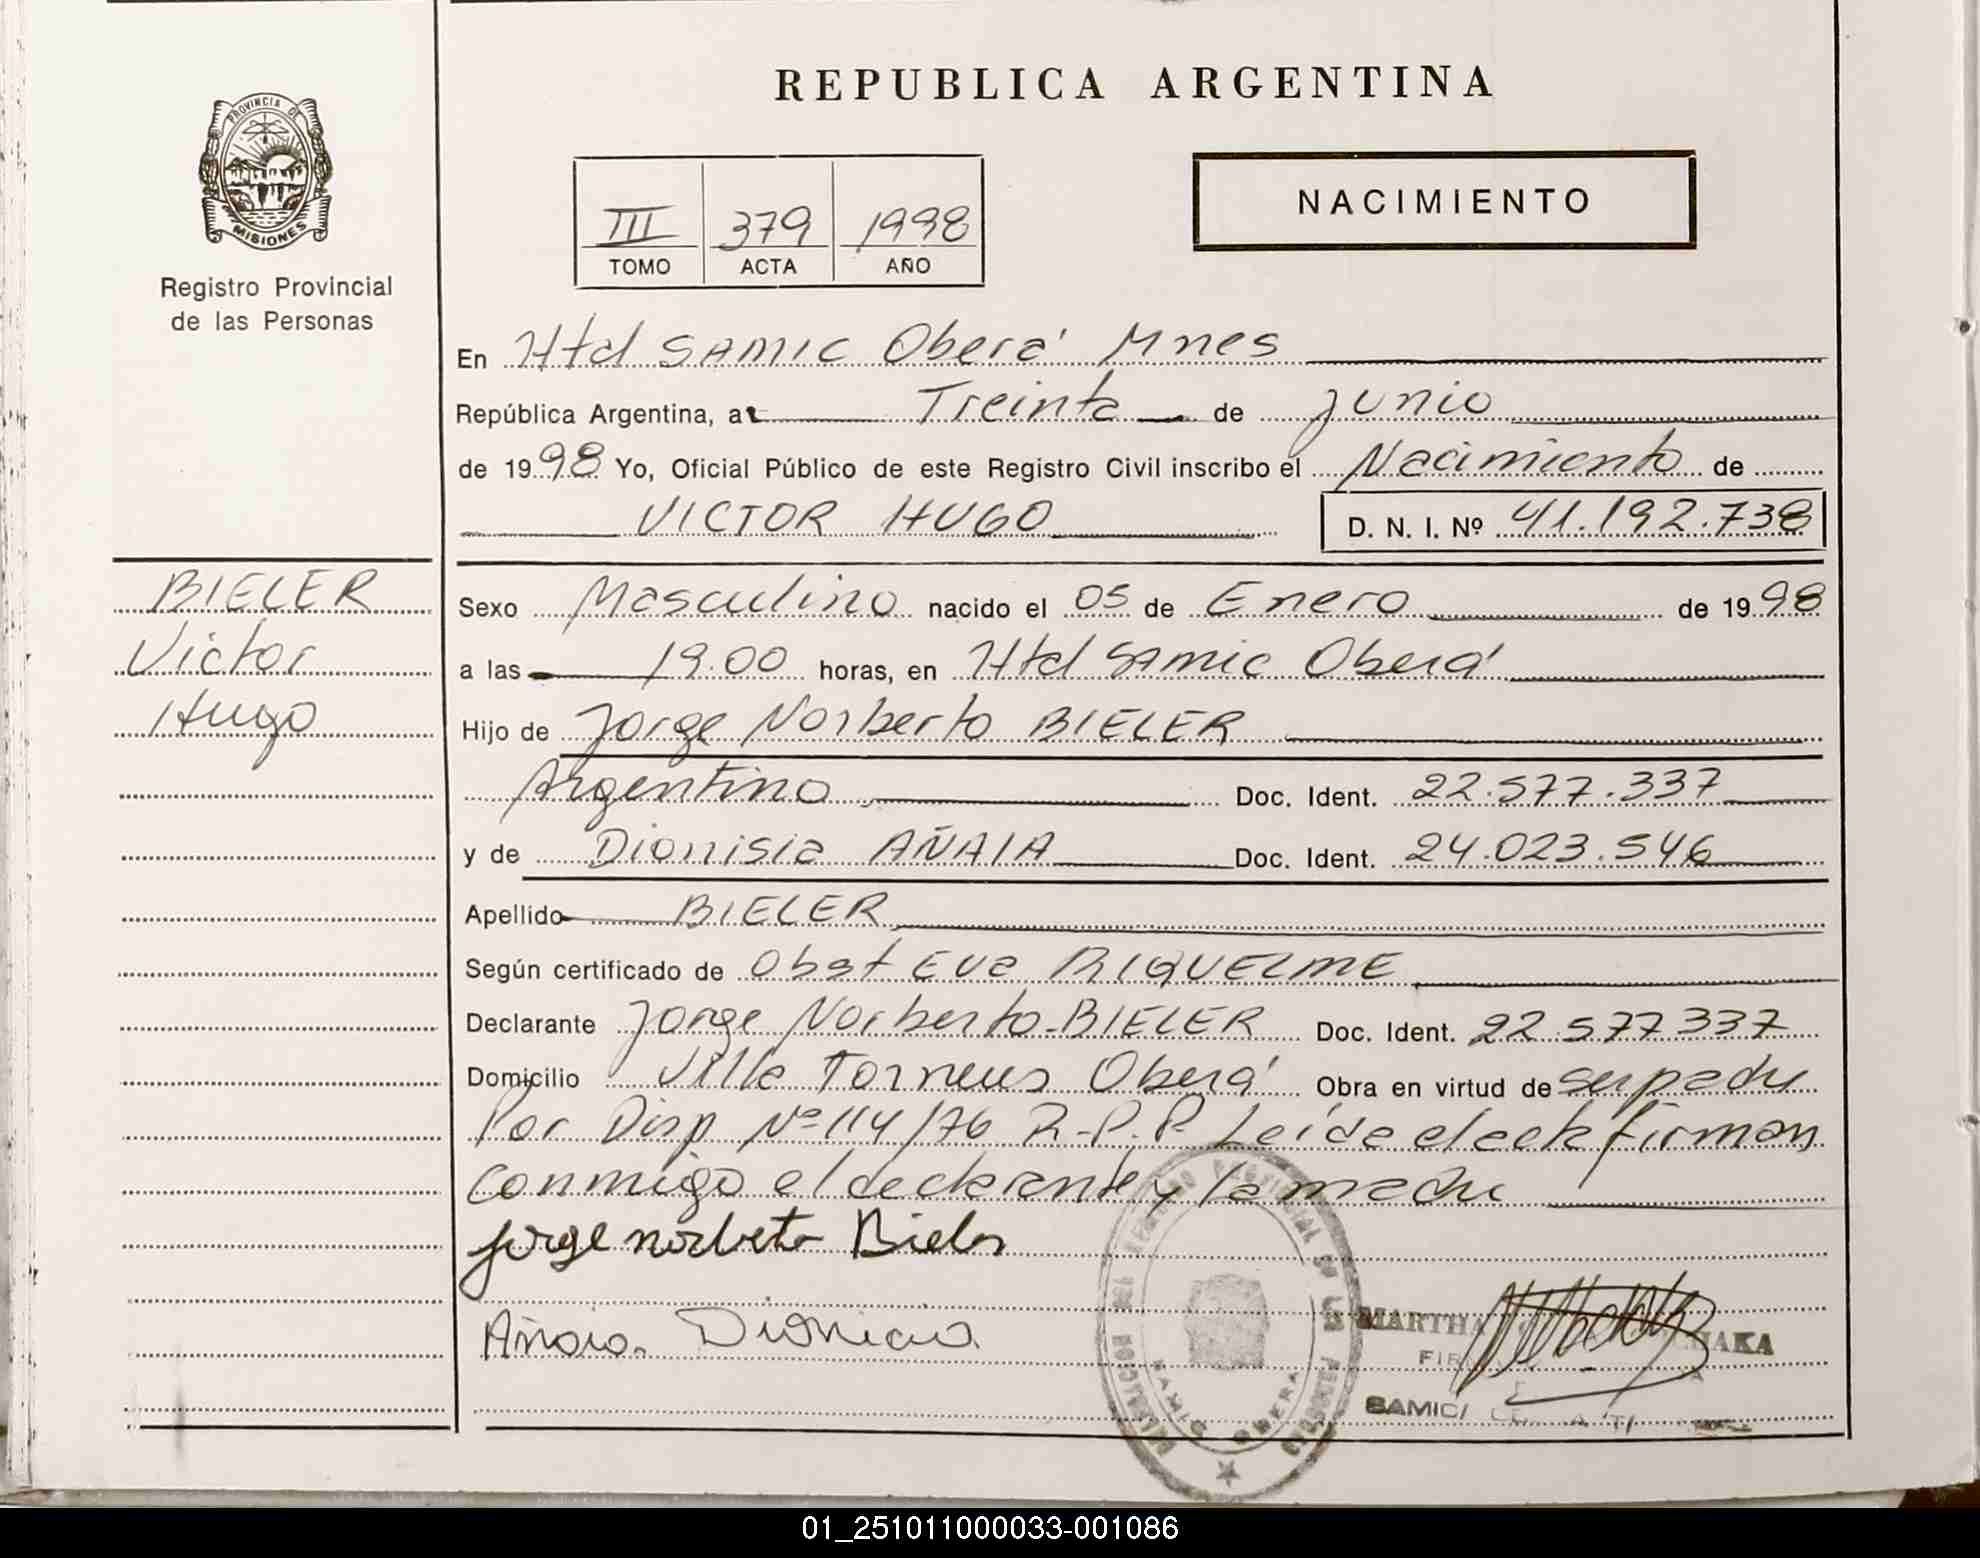 REPUBLICA ARGENTINA
PROVINCIA DE
MISIONES
Registro Provincial
de las Personas
III 379 1998
TOMO ACTA AÑO
NACIMIENTO
En Htal SAMIC Oberá Mnes
República Argentina, a Treinta de Junio
de 1998 Yo, Oficial Público de este Registro Civil inscribo el Nacimiento de
VICTOR HUGO D. N. I. Nº 41.192.738
BIELER
Victor
Hugo
Sexo Masculino nacido el 05 de Enero de 1998
a las 19.00 horas, en Htal Samic Oberá
Hijo de Jorge Norberto BIELER
Argentino Doc. Ident. 22.577.337
y de Dionisia AÑAIA Doc. Ident. 24.023.546
Apellido BIELER
Según certificado de Obst Eva RIQUELME
Declarante Jorge Norberto BIELER Doc. Ident. 22.577.337
Domicilio Villa Torneus Oberá Obra en virtud de ser padre
Por Disp Nº 114/76 R.P.P Leída el acta firman
conmigo el declarante y la madre
Jorge norberto Bieler
Añaia Dionicia
MARTHA HAKA
SAMIC
OBERA
01_251011000033-001086